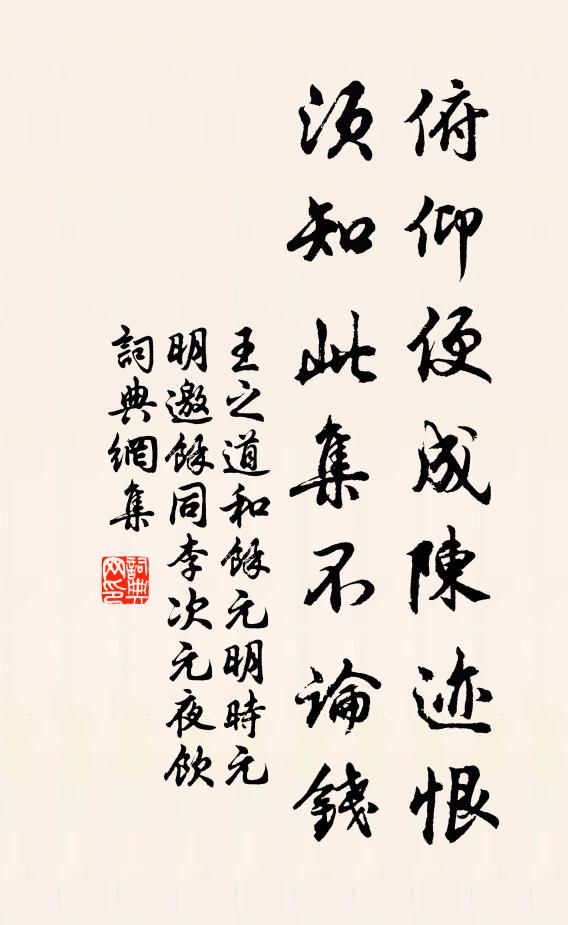 俯仰便成陳迹恨
須知此集不論錢
王之道和餘元明時元
明邀餘同李次元夜飲
詞典網集
詞典
网印